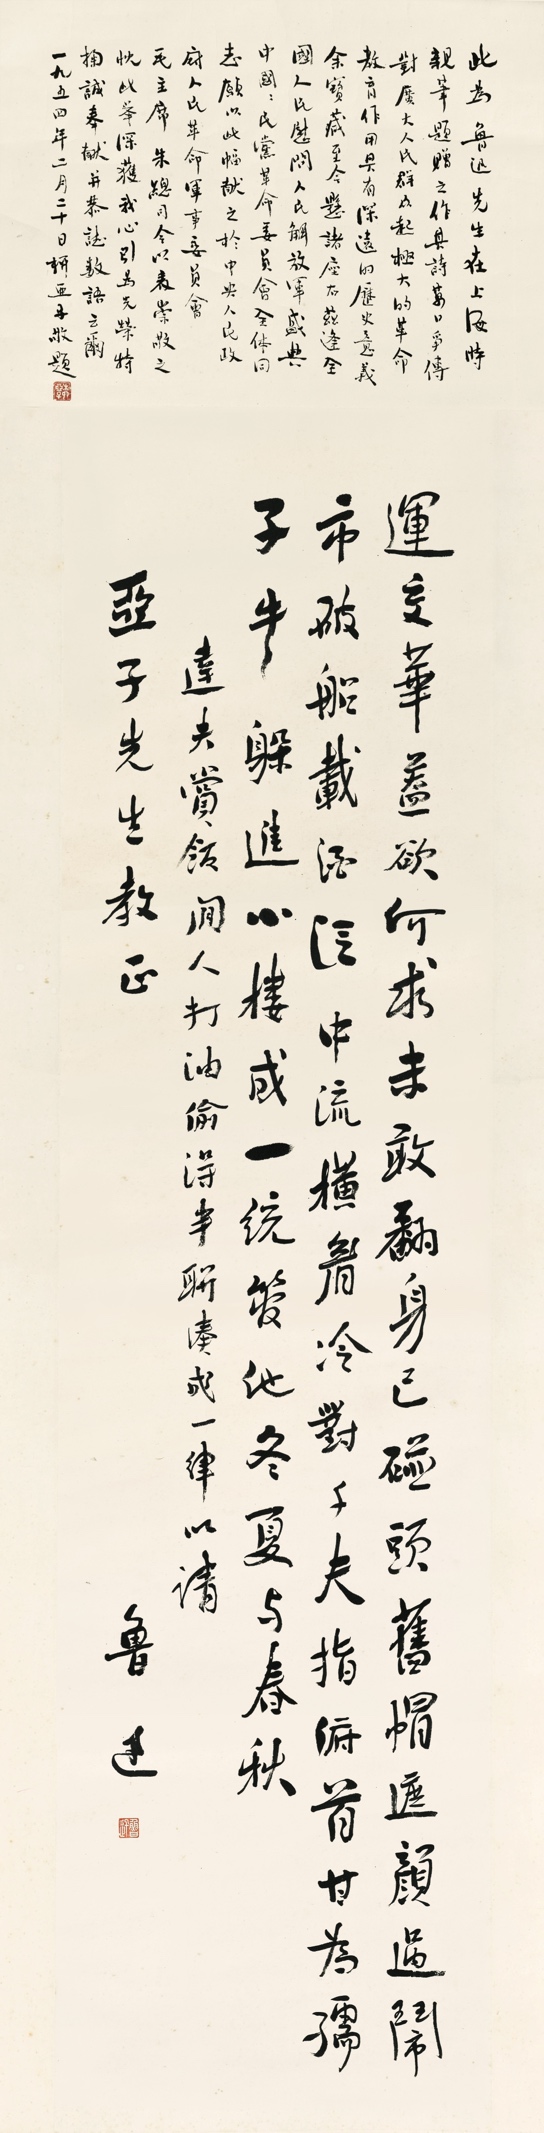 此為魯迅先生在上海時
親筆題贈之作其詩萬口爭傳
對廣大人民群众起極大的革命
教育作用具有深遠的歷史意義
余寶藏至今懸諸座右茲逢全
國人民慰問人民解放軍盛典
中國國民黨革命委員會全体同
志願以此幅献之於中央人民政
府人民革命軍事委員會
毛主席朱總司令以表崇敬之
忱此举深獲我心引為光榮特
掬誠奉献并恭誌数語云爾
一九五四年二月二十日柳亞子敬題
運交華蓋欲何求未敢翻身已碰頭舊帽遮顏過鬧
市破船載酒泛中流橫眉冷對千夫指俯首甘為孺
子牛躲進小樓成一統管他冬夏与春秋
達夫賞飯閒人打油偷得半聯湊成一律以請
亞子先生教正
魯迅